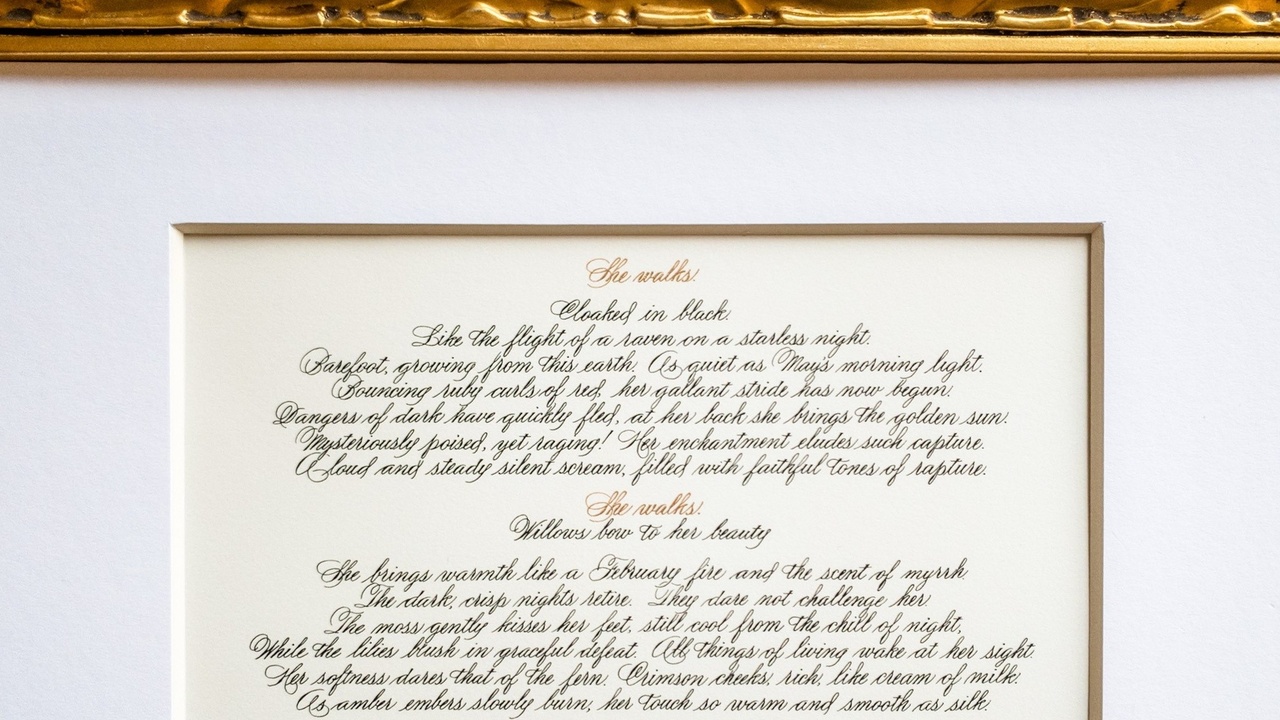 She walks.
Cloaked in black.
Like the flight of a raven on a starless night.
Barefoot, growing from this earth. As quiet as May's morning light.
Bouncing ruby curls of red, her gallant stride has now begun.
Dangers of dark have quickly fled, at her back she brings the golden sun.
Mysteriously poised, yet raging! Her enchantment eludes such capture.
A loud and steady silent scream, filled with faithful tones of rapture.
She walks.
Willows bow to her beauty
She brings warmth like a February fire and the scent of myrrh
The dark, crisp nights retire. They dare not challenge her.
The moss gently kisses her feet, still cool from the chill of night,
While the lilies blush in graceful defeat. All things of living wake at her sight.
Her softness dares that of the fern. Crimson cheeks, rich, like cream of milk.
As amber embers slowly burn, her touch so warm and smooth as silk.